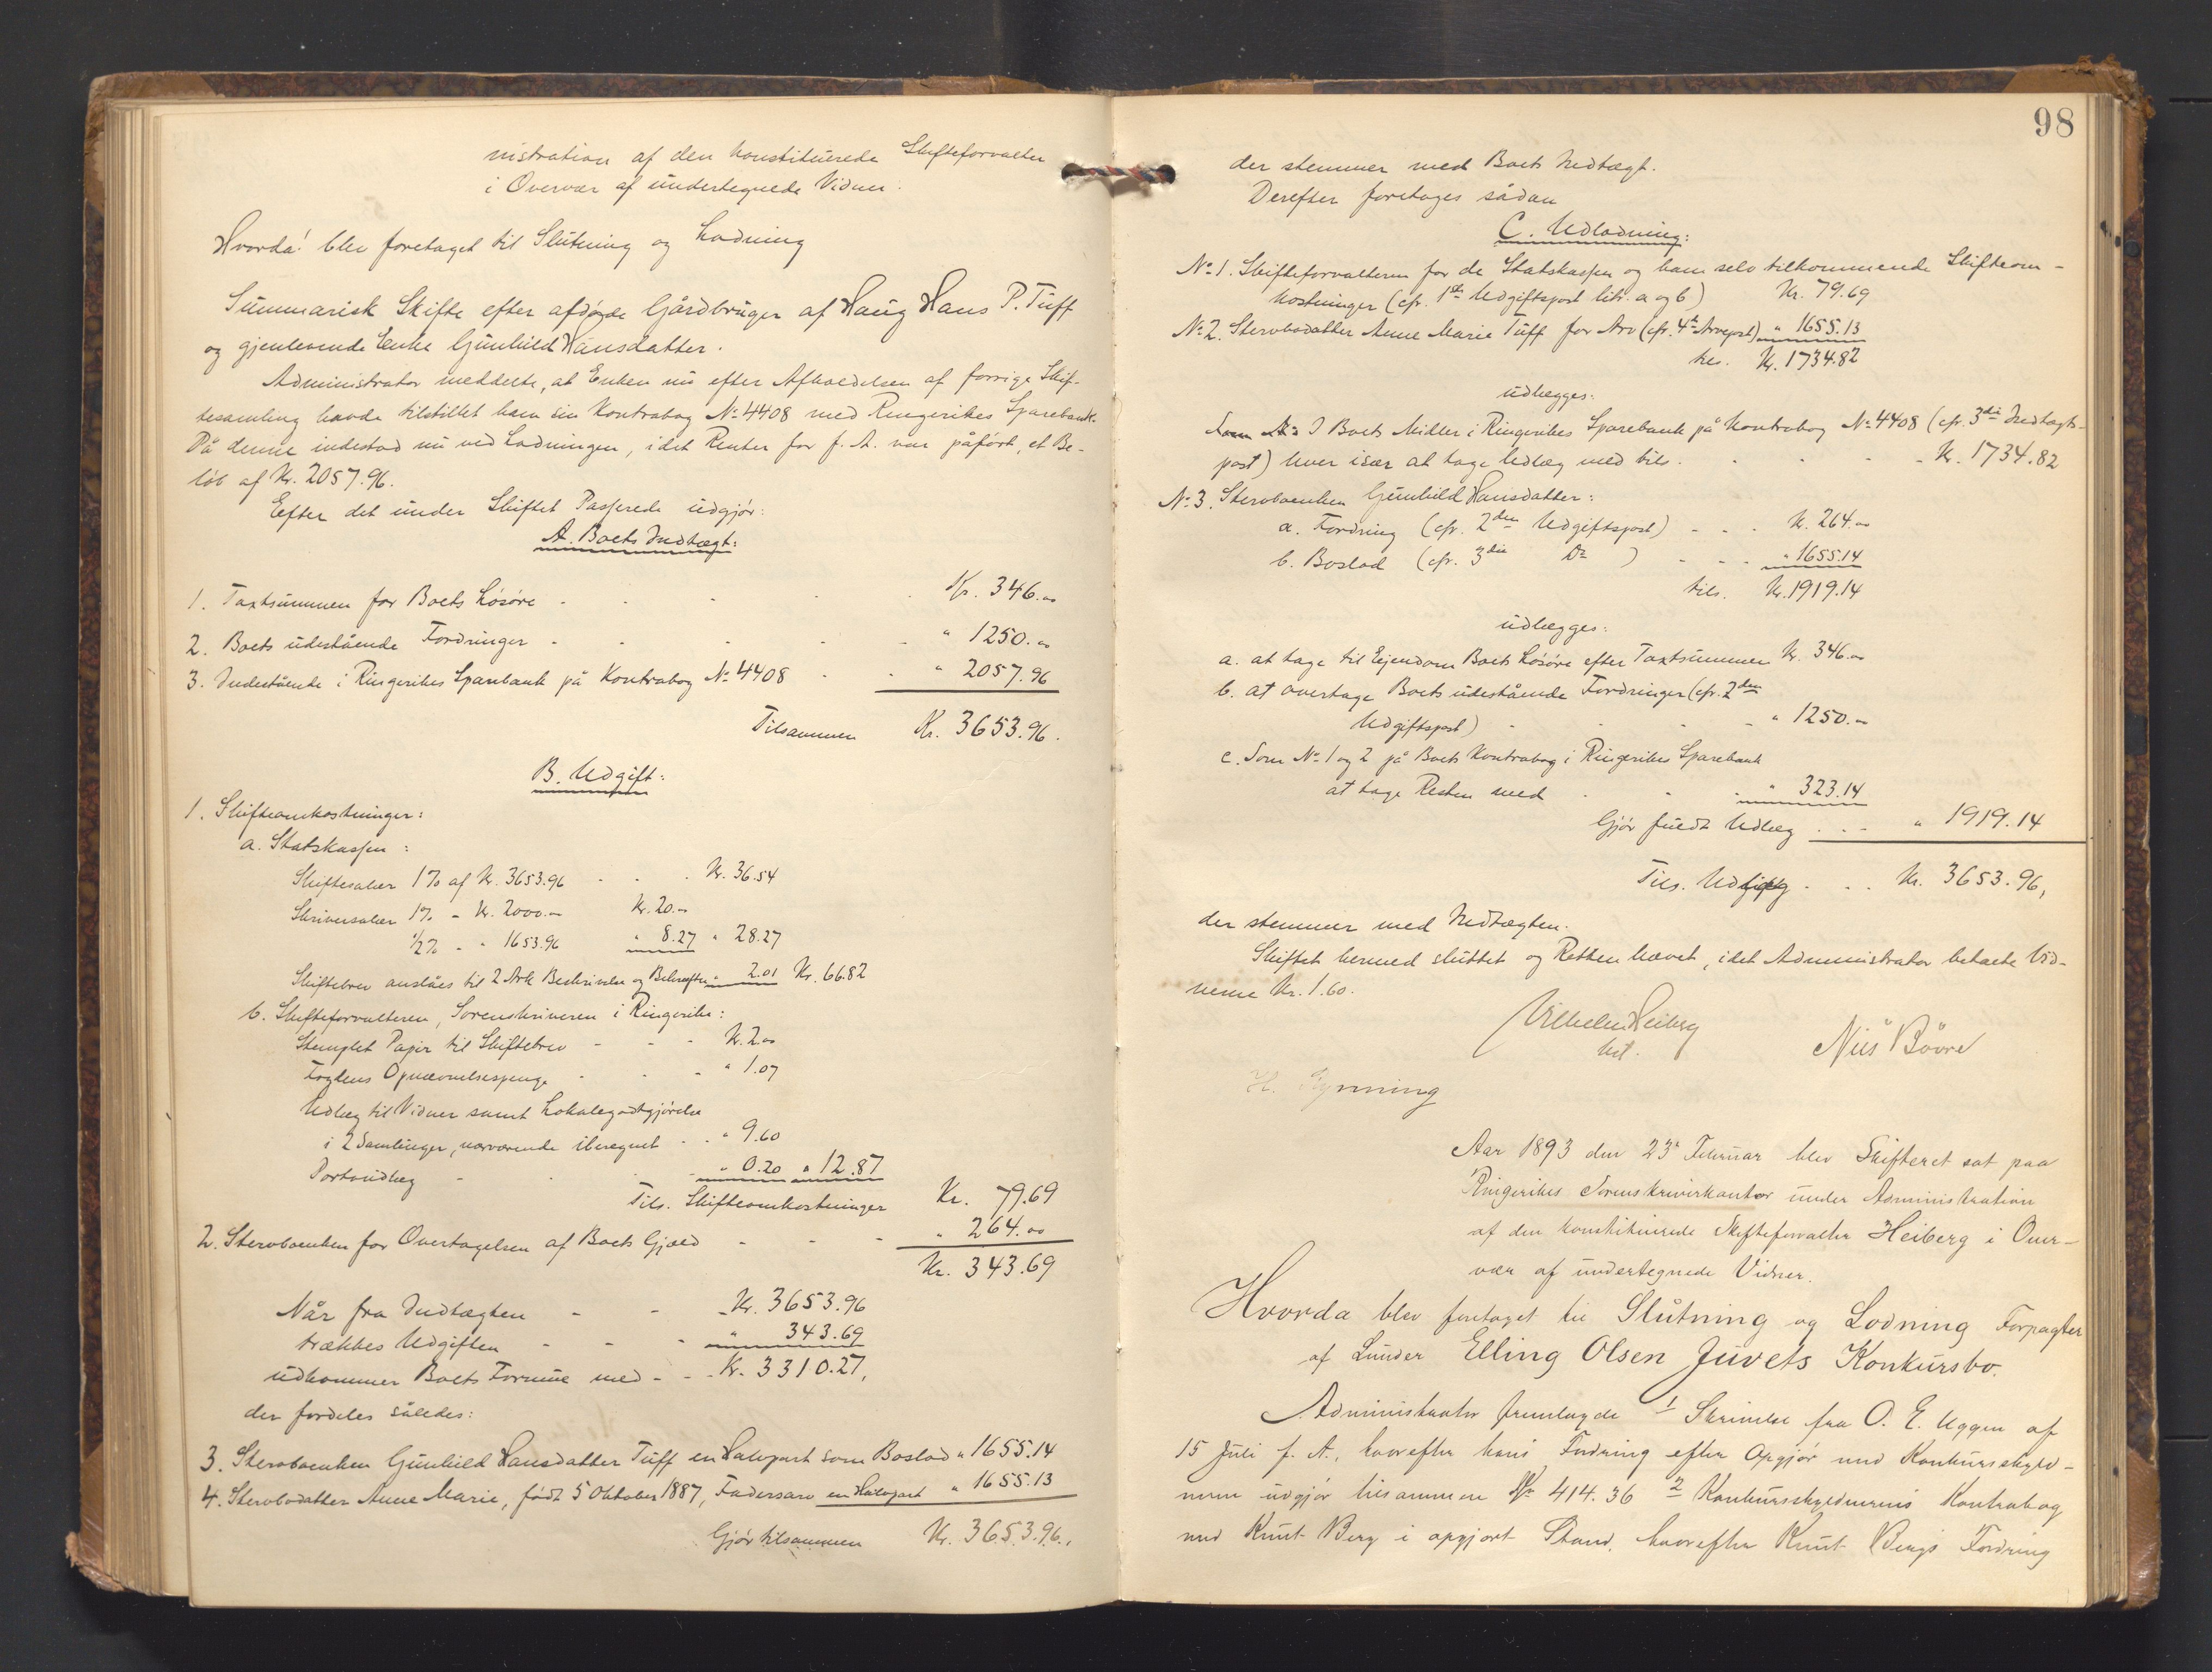 nistration af den konstituerede Skifteforvalter
i Overvær af undertegnede Vidner.
Hvorda! blev foretaget til Slutning og Lodning
Summarisk Skifte efter afdøde Gårdbruger af Haug Hans P. Tuff
og gjenlevende Enke Gunhild Hansdatter.
Administrator meddelte, at Enken nu efter Afholdelsen af forrige Skif-
tesamling havde tilstillet ham sin Kontrabog No 4408 med Ringerikes Sparebank.
På denne indestod nu ved Lodningen, idet Renter for f. A. var påført, et Be-
løb af Kr. 2057.96.
Efter det under Skiftet Passerede udgjør:
A. Boets Indtægt:
1. Taxtsummen for Boets Løsøre - - - - Kr. 346.00
2. Boets udestående Fordringer - - - - " 1250.00
3. Indestående i Ringerikes Sparebank på Kontrabog No 4408 - - " 2057.96
Tilsammen Kr. 3653.96.
B. Udgift:
1. Skifteomkostninger:
a. Statskassen:
Skiftesalær 1% af Kr. 3653.96 - - - Kr. 36.54
Skriversalær 1% - Kr. 2000.00 Kr. 20.00
1/2% - " 1653.96 " 8.27 " 28.27
Skiftebrev anslåes til 2 Ark Beskrivelse og Bekræftn. " 2.01 Kr. 66.82
b. Skifteforvalteren, Sorenskriveren i Ringerike:
Stemplet Papir til Skiftebrev - - - Kr. 2.00
Fogdens Opnævnelsespenge - - - " 1.07
Udlæg til Vidner samt Lokalegodtgjørelse
i 2 Samlinger, nærværende iberegnet - - " 9.60
Portoudlæg - - - " 0.20 " 12.87
Tils. Skifteomkostninger Kr. 79.69
2. Stervboenken for Overtagelsen af Boets Gjæld - - - " 264.00
Kr. 343.69
Når fra Indtægten - - - Kr. 3653.96
trækkes Udgiften - - - " 343.69
udkommer Boets Formue med - - - Kr. 3310.27,
der fordeles således:
3. Stervboenken Gunhild Hansdatter Tuff en Halvpart som Boslod " 1655.14
4. Stervbodatter Anne Marie, født 5 Oktober 1887, Fadersarv en Halvpart " 1655.13
Gjør tilsammen Kr. 3653.96.,
98
der stemmer med Boets Indtægt.
Derefter foretages sådan
C. Udlodning:
No 1. Skifteforvalteren for de Statskassen og ham selv tilkommende Skifteom-
kostninger (cfr. 1ste Udgiftspost litr. a og b) Kr. 79.69
No 2. Stervbodatter Anne Marie Tuff for Arv (cfr. 4de Arvepost) " 1655.13
tils. Kr. 1734.82
udlægges:
I Boets Midler i Ringerikes Sparebank på Kontrabog No 4408 (cfr. 3die Indtægts-
post) hver især at tage Udlæg med tils. - - - - Kr. 1734.82
No 3. Stervboenken Gunhild Hansdatter:
a. Fordring (cfr. 2den Udgiftspost) - - - Kr. 264.00
b. Boslod (cfr. 3die Do ) - - - " 1655.14
tils. Kr. 1919.14
udlægges:
a. at tage til Eiendom Boets Løsøre efter Taxtsummen Kr. 346.00
b. at overtage Boets udestående Fordringer (cfr. 2den
Udgiftspost) - - - - " 1250.00
c. Som No 1 og 2 på Boets Kontrabog i Ringerikes Sparebank
at tage Resten med - - - " 323.14
Gjør fuldt Udlæg - - - " 1919.14
Tils. Udlæg - - - Kr. 3653.96,
der stemmer med Indtægten.
Skiftet hermed sluttet og Retten hævet, idet Administrator betalte Vid-
nerne Kr. 1.60.
Vilhelm Heiberg
kst.
Nils Bøvre
H. Gynning
Aar 1893 den 23de Februar blev Skifteret sat paa
Ringerikes Sorenskriverkontor under Administration
af den konstituerede Skifteforvalter Heiberg i Over-
vær af undertegnede Vidner.
Hvorda blev foretaget til Slutning og Lodning Forpagter
af Lunder Elling Olsen Juvets Konkursbo.
Administrator fremlagde 1 Skrivelse fra O. E. Uggen af
15 Juli f. A., hvorefter hans Fordring efter Opgjør med Konkursskyld-
neren udgjør tilsammen Kr 414.36 2 Konkursskyldnerens Kontrabog
med Knut Berg i opgjort Stand, hvorefter Knut Bergs Fordring